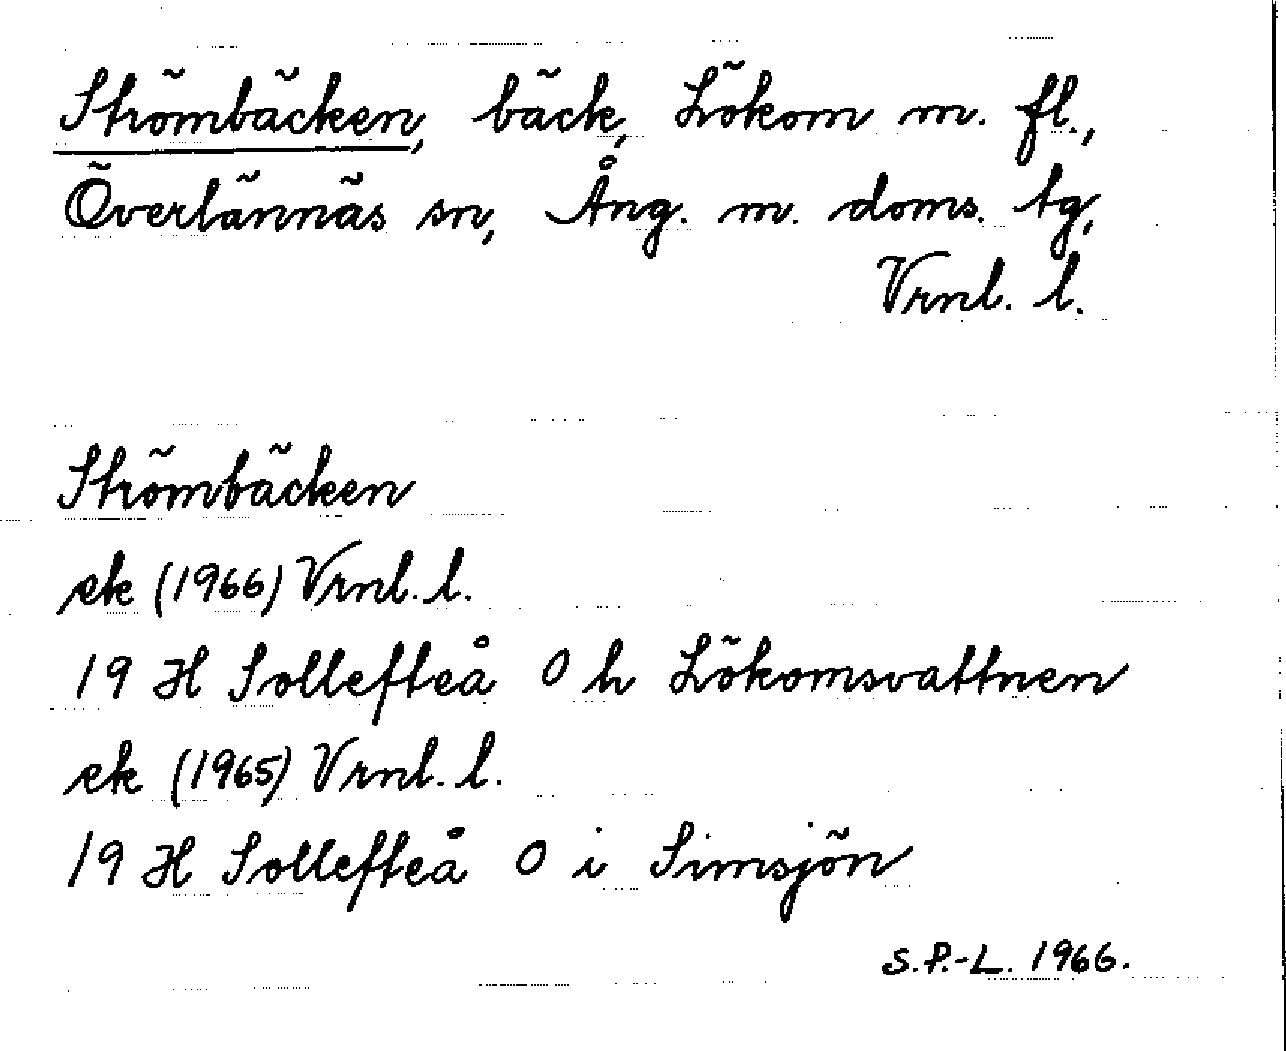 Strömbäcken, bäck, Lökom m. fl.,
Överlännäs sn, Ång. m. doms. tg,
Vrnl. l.
Strömbäcken
ek (1966) Vrnl. l.
19 H Sollefteå 0 h Lökomsvattnen
ek (1965) Vrnl. l.
19 H Sollefteå 0 i Simsjön
S.P.-L. 1966.